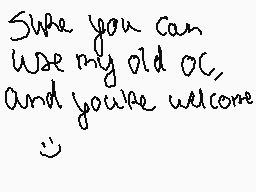 Sure you can
use my old oc,
and you're welcome
:)